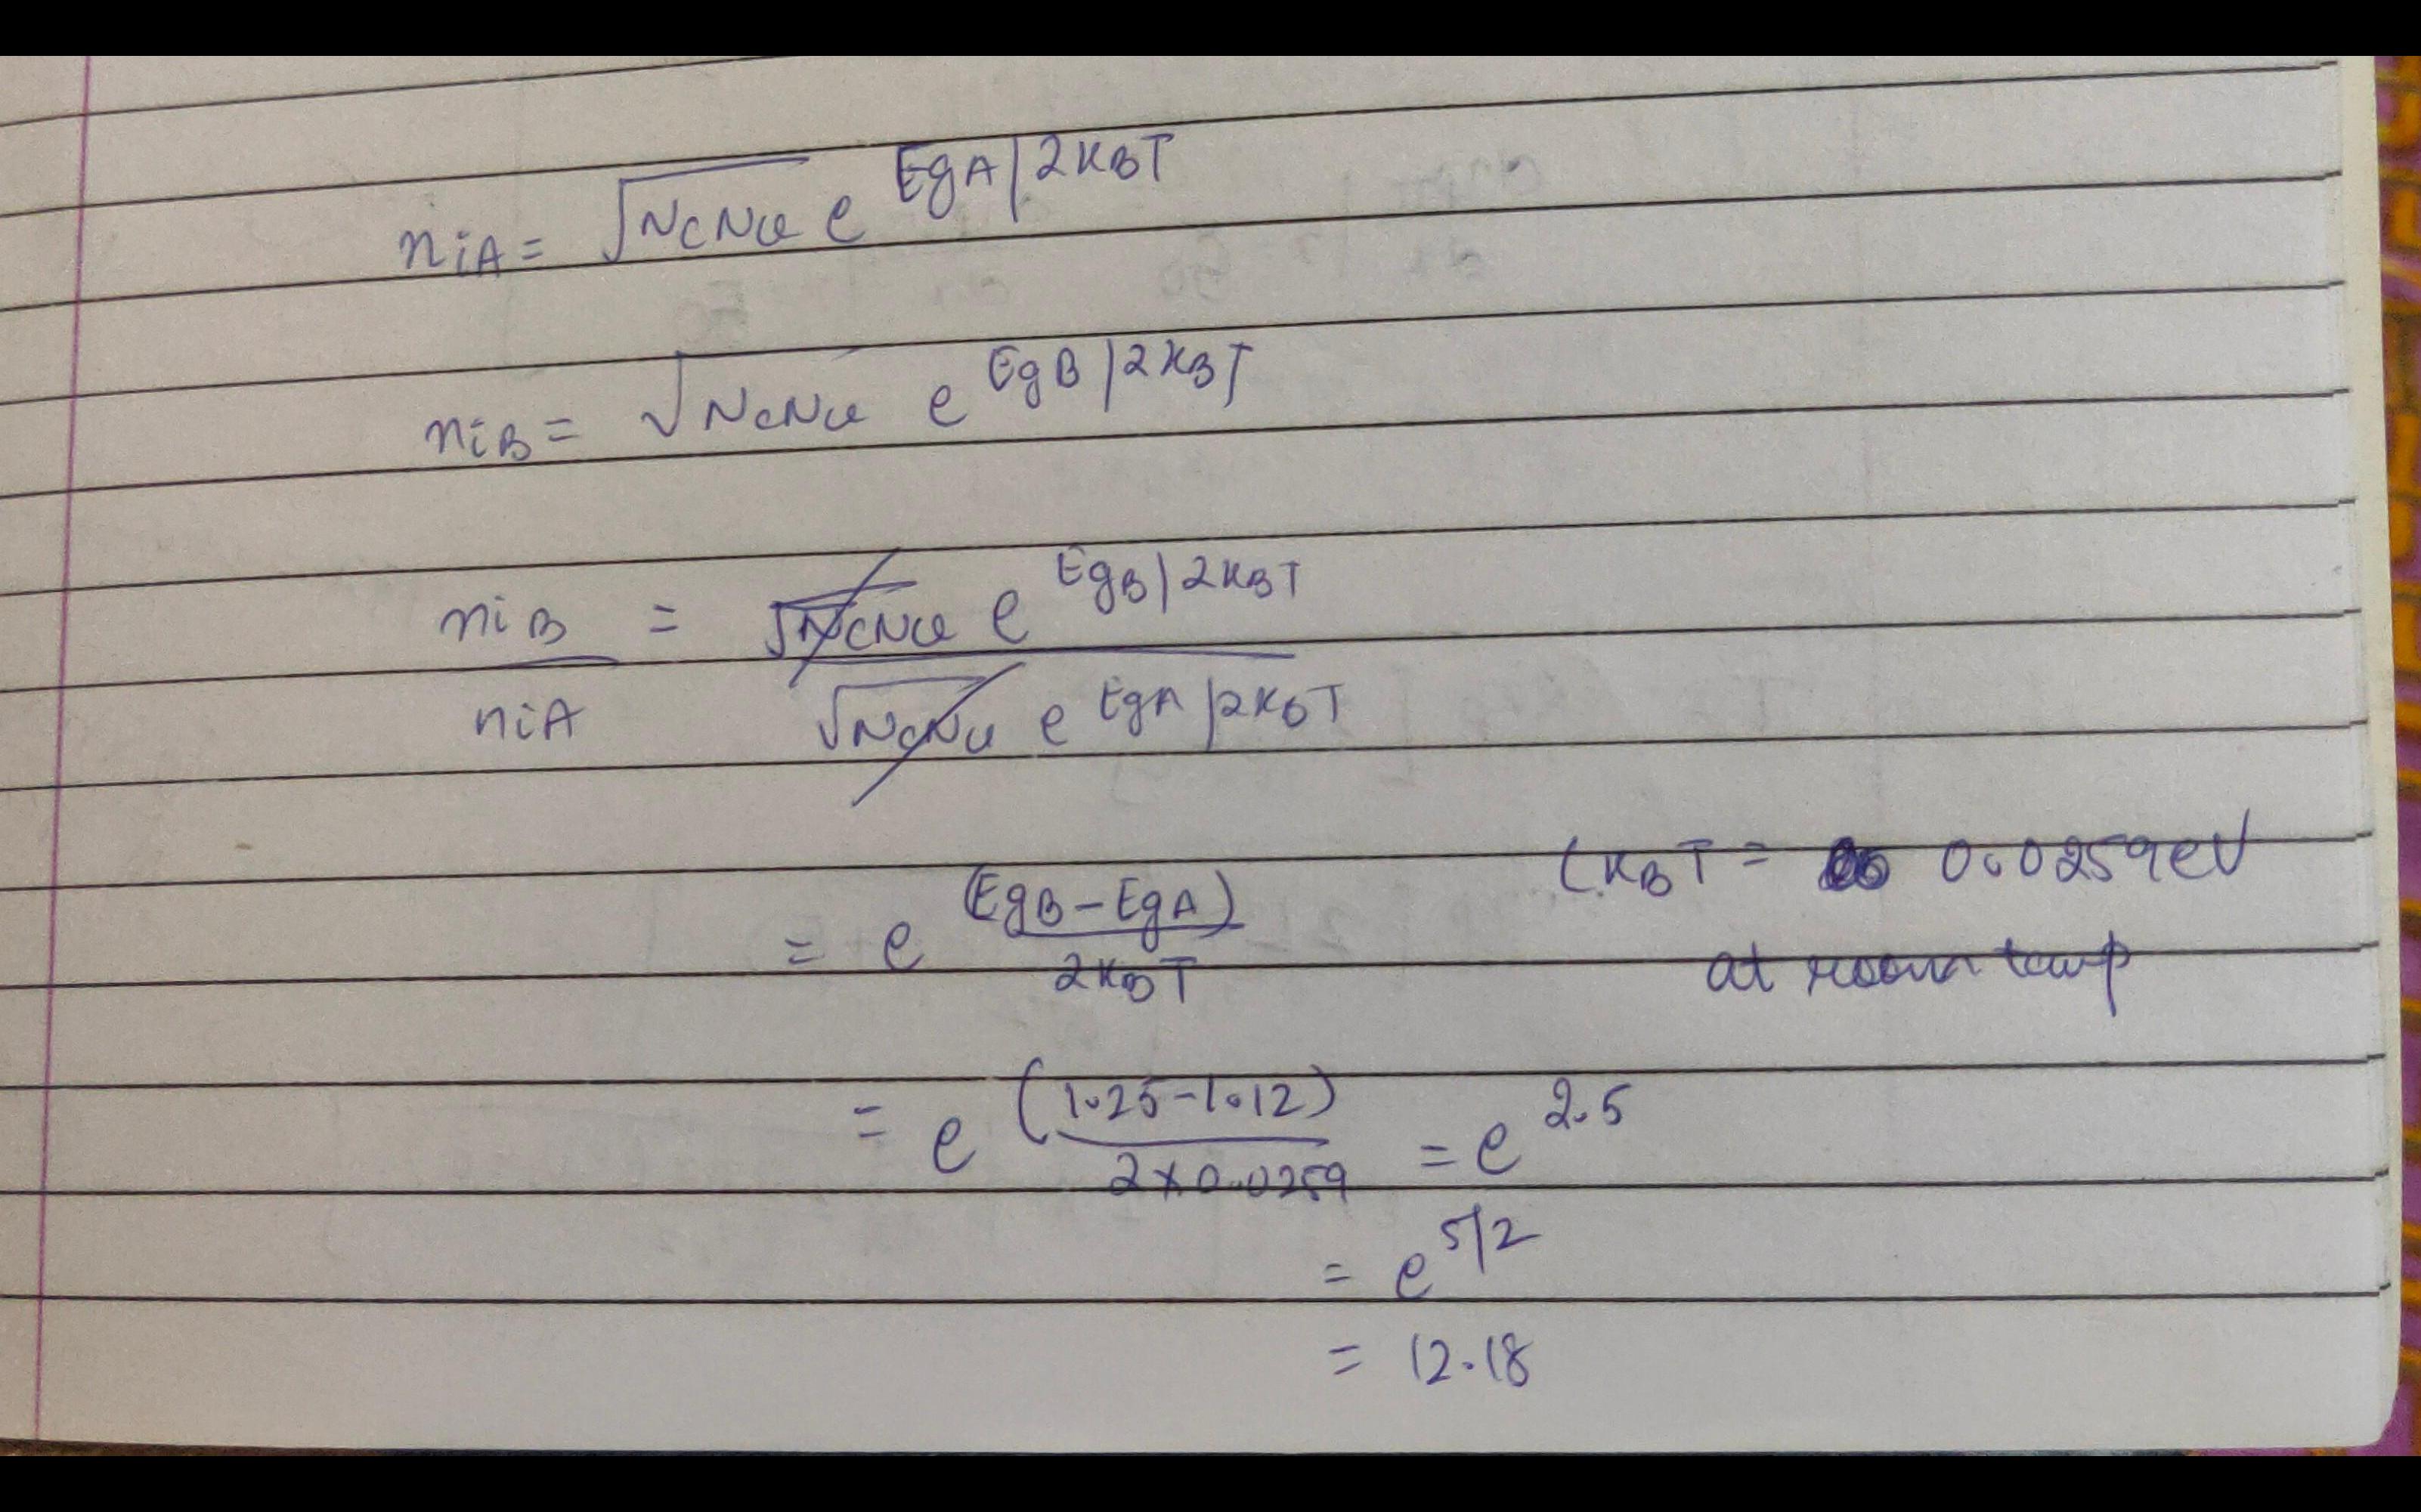 niA = √NcNv e^EgA/2KBT
niB = √NcNv e^EgB/2KBT
niB/niA = √NcNv e^EgB/2KBT / √NcNv e^EgA/2KBT
= e^(EgB-EgA)/2KBT (KBT = 0.0259eV
at room temp
= e^(1.25-1.12)/2×0.0259 = e^2.5
= e^5/2
= 12.18